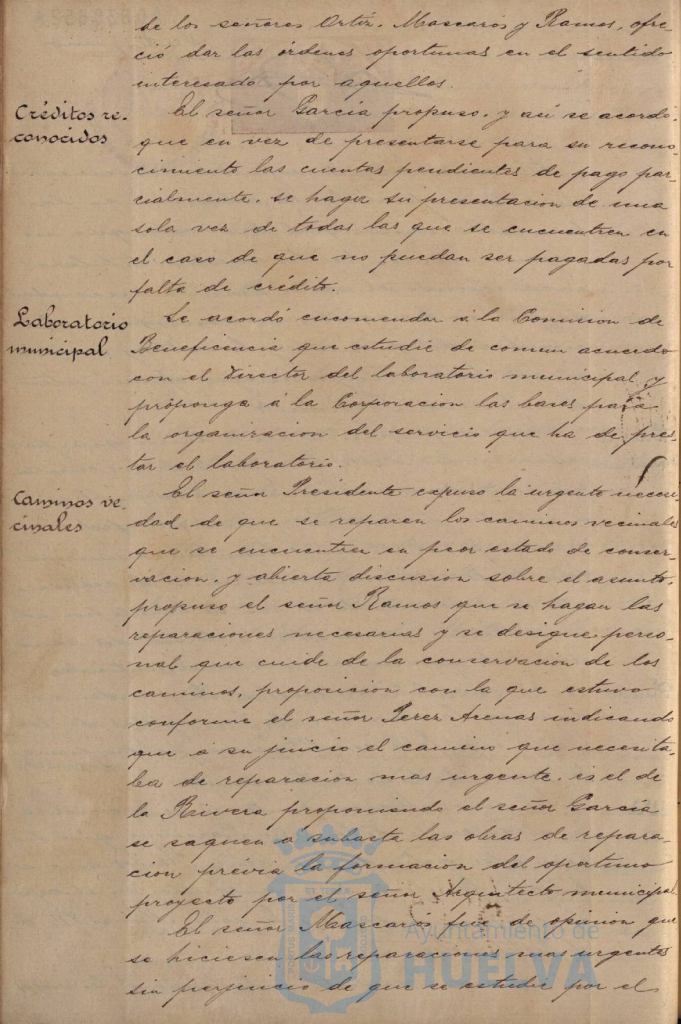 de los señores Ortiz, Mascarós y Ramos, ofre-
ció dar las órdenes oportunas en el sentido
interesado por aquellos.
Créditos re-
conocidos
El señor García propuso, y así se acordó,
que en vez de presentarse para su recono-
cimiento las cuentas pendientes de pago par-
cialmente, se haga su presentacion de una
sola vez de todas las que se encuentren en
el caso de que no puedan ser pagadas por
falta de crédito.
Laboratorio
municipal
Se acordó encomendar á la Comision de
Beneficencia que estudie de comun acuerdo
con el Director del laboratorio municipal y
proponga á la Corporacion las bases para
la organizacion del servicio que ha de pres-
tar el laboratorio.
Caminos ve-
cinales
El señor Presidente expuso la urgente necesi-
dad de que se reparen los caminos vecinales
que se encuentren en peor estado de conser-
vacion, y abierta discusion sobre el asunto,
propuso el señor Ramos que se hagan las
reparaciones necesarias y se designe perso-
nal que cuide de la conservacion de los
caminos, proposicion con la que estuvo
conforme el señor Perez Arenas indicando
que á su juicio el camino que necesita-
ba de reparacion mas urgente, es el de
la Rivera proponiendo el señor García
se saquen á subasta las obras de repara-
cion prévia la formacion del oportuno
proyecto por el señor Arquitecto municipal.
El señor Mascarós fué de opinion que
se hiciesen las reparaciones mas urgentes
sin perjuicio de que se estudie por el
Ayuntamiento de
HUELVA